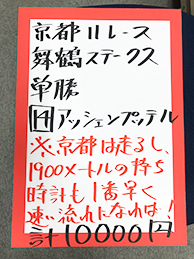 京都11レース
舞鶴ステークス
単勝
14アッシェンプッテル
※京都は走るし、
1900メートルの持ち
時計も1番早く
速い流れになれば!
計10000円